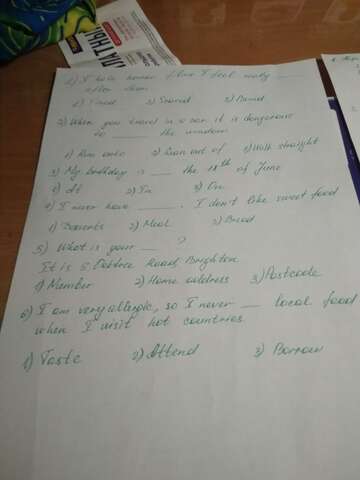 ПЛАТНЫ
1) I hate horror films I feel really ___
after them
1) Tired 2) Scared 3) Bored
2) When you travel in a car it is dangerous
to ___ the window
1) Run into 2) Lean out of 3) Walk straight
3) My birthday is ___ the 18th of June
1) At 2) In 3) On
4) I never have ___. I don't like sweet food
1) Desserts 2) Meal 3) Bread
5) What is your ___ ?
It is 5 Road, Brighton
1) Number 2) Home address 3) Postcode
6) I am very allergic, so I never ___ local food
when I visit hot countries
1) Taste 2) Attend 3) Borrow